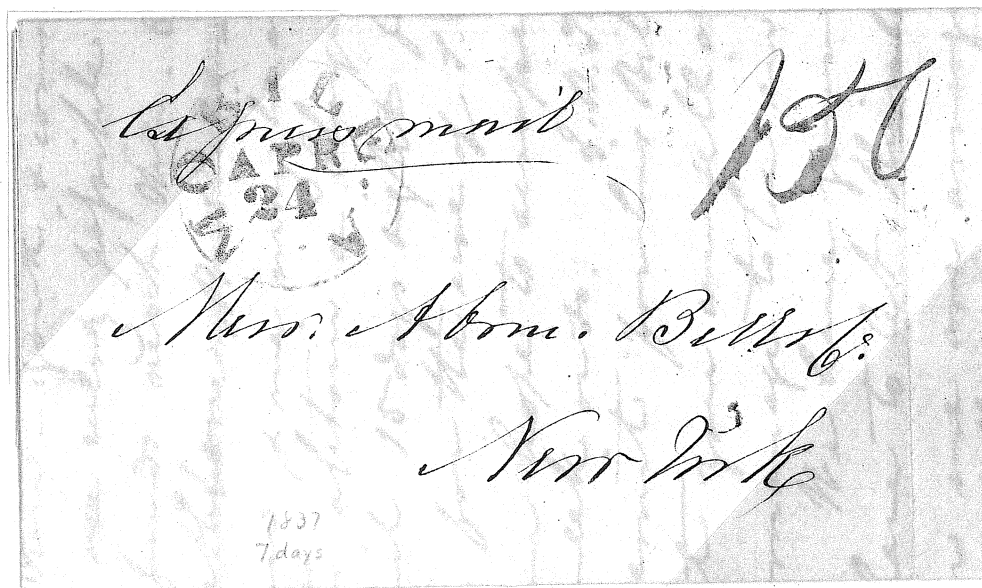 Express mail
150
24
Messrs. Abm. Bell & Co.
New York
1837
7 days